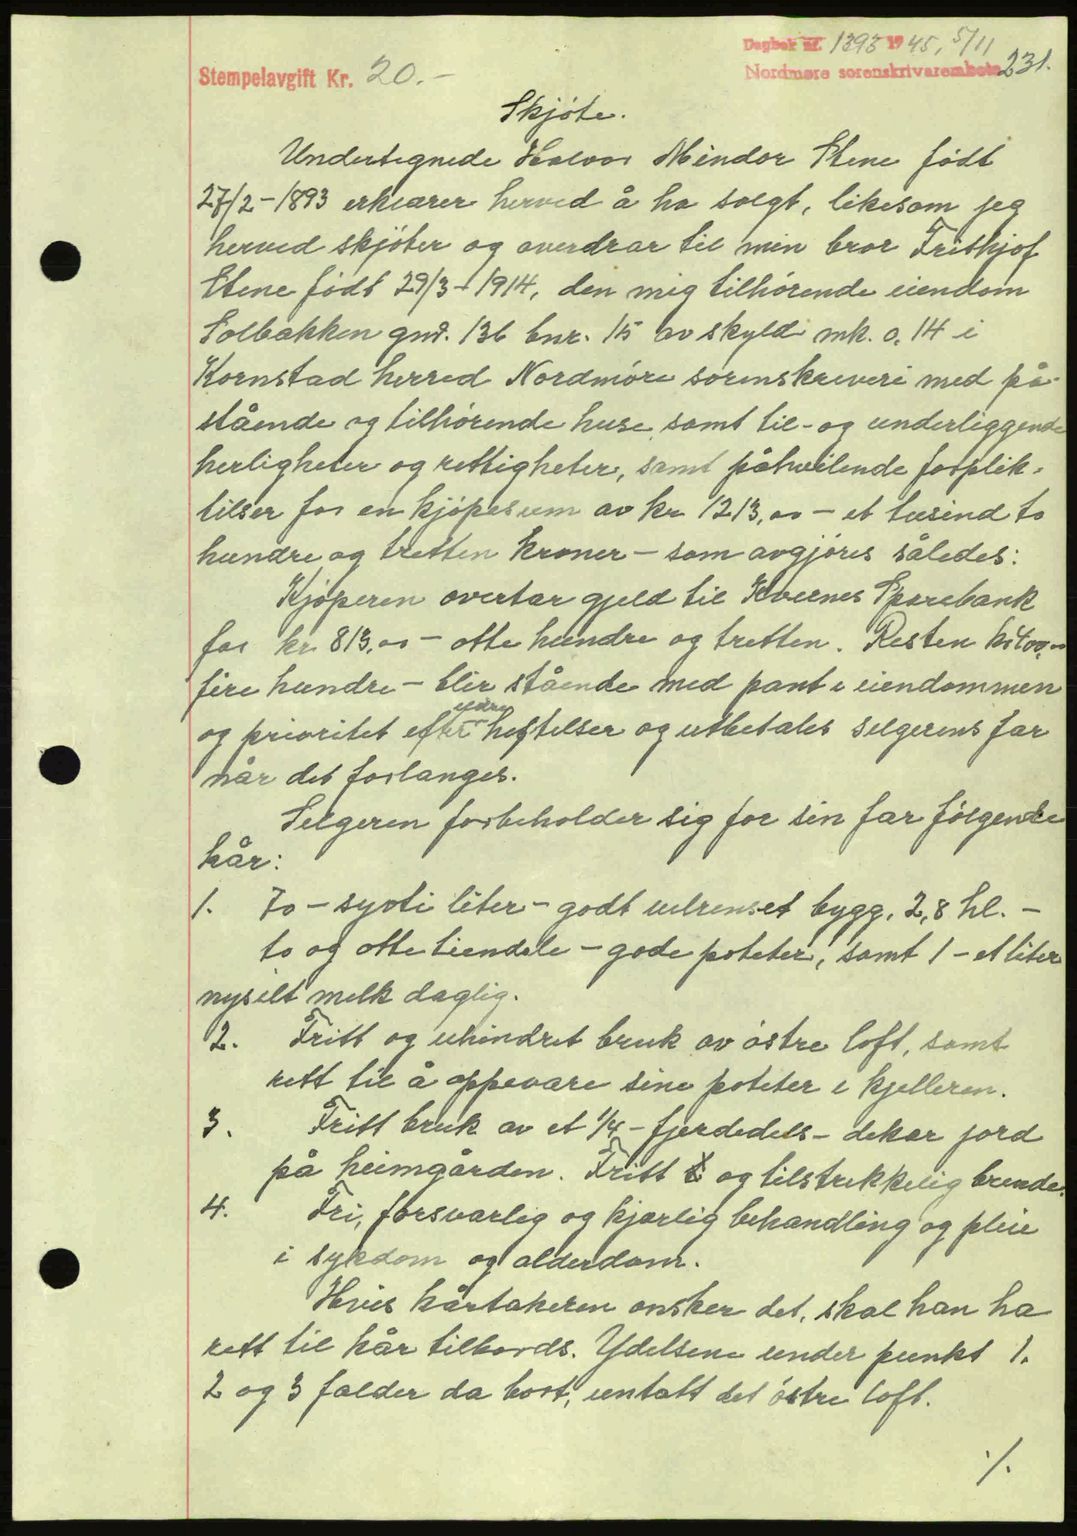 Dagbok nr. 1393 1945, 5/11
Stempelavgift Kr. 20.-
Nordmøre sorenskrivarembete 231.
Skjøte.
Undertegnede Halvor Mindor Stene født
27/2-1893 erklærer herved å ha solgt, likesom jeg
herved skjøter og overdrar til min bror Frithjof
Stene født 29/3-1914, den mig tilhørende eiendom
Solbakken gnr. 136 bnr. 15 av skyld mk. 0,14 i
Kornstad herred Nordmøre sorenskriveri med på-
stående og tilhørende huse, samt til- og underliggende
herligheter og rettigheter, samt påhvilende forplik-
telser for en kjøpesum av kr 1213,00 - et tusind to
hundre og tretten kroner - som avgjøres således:
Kjøperen overtar gjeld til Kvernes Sparebank
for kr 813,00 - otte hundre og tretten. Resten kr 400,-
fire hundre - blir stående med pant i eiendommen
og prioritet efter heftelser og utbetales selgerens far
når det forlanges.
Selgeren forbeholder sig for sin far følgende
kår:
1. 70 - sytti liter - godt velrenset bygg, 2,8 hl. -
to og otte tiendele - gode poteter, samt 1 - et liter
nysilt melk daglig.
2. Fritt og uhindret bruk av østre loft, samt
rett til å oppevare sine poteter i kjelleren.
3. Fritt bruk av et 1/4 - fjerdedels - dekar jord
på heimgården. Fritt og tilstrekkelig brende.
4. Fri, forsvarlig og kjærlig behandling og pleie
i sykdom og alderdom.
Hvis kårtakeren ønsker det, skal han ha
rett til kår tilbords. Ydelsene under punkt 1.
2 og 3 falder da bort, untatt det østre loft.
./.